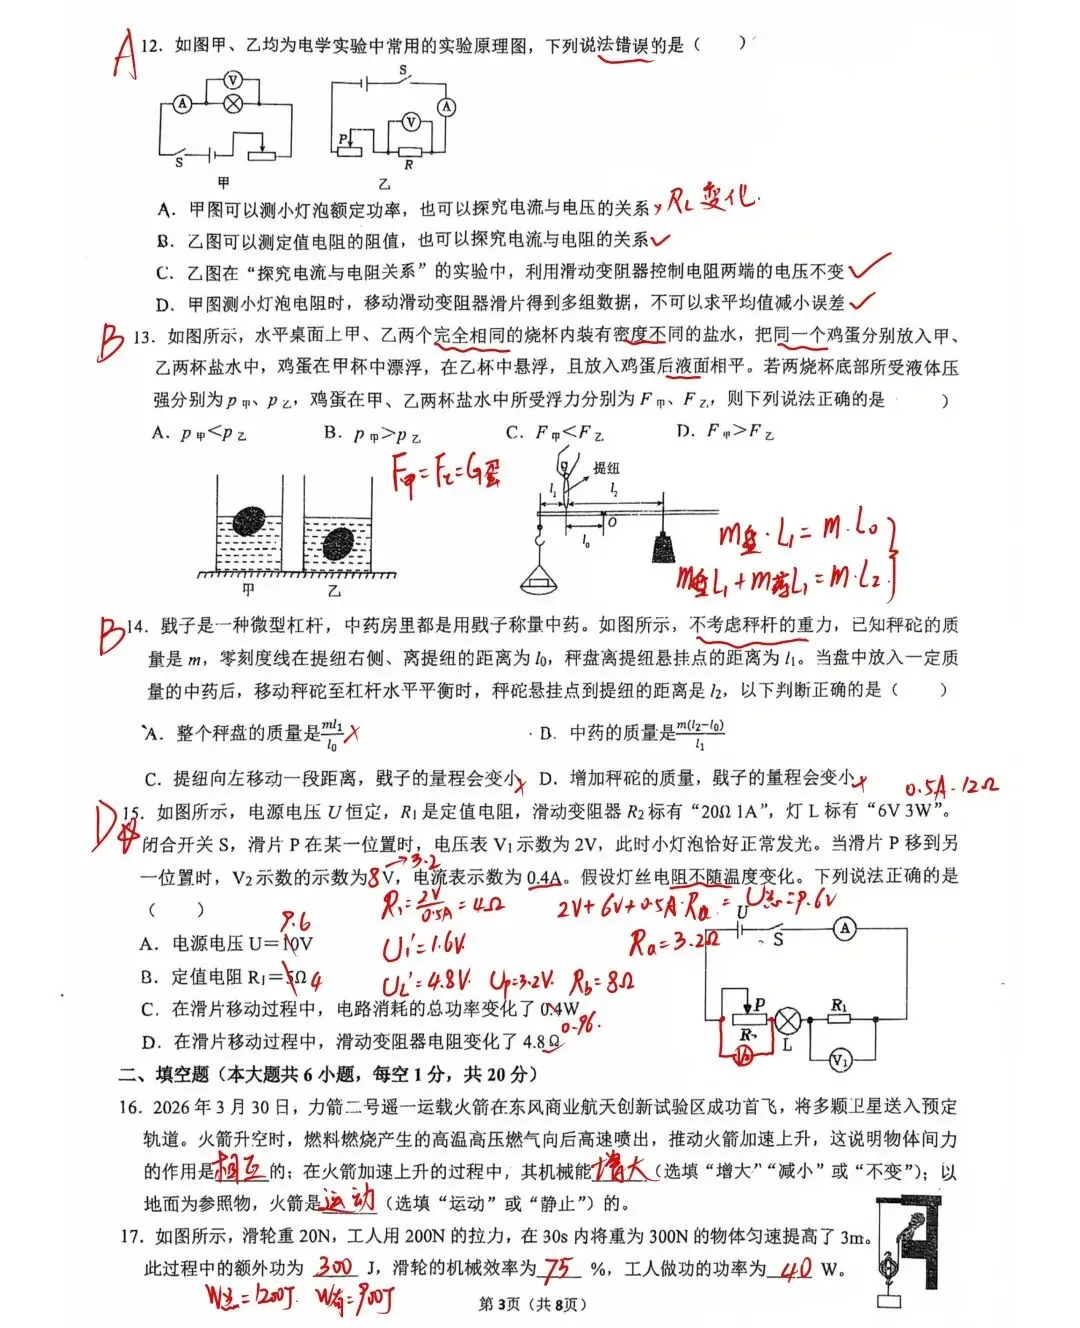 A 12. 如图甲、乙均为电学实验中常用的实验原理图，下列说法错误的是（ ）
V A S 甲
S A V P R 乙
A. 甲图可以测小灯泡额定功率，也可以探究电流与电压的关系 × RL 变化.
B. 乙图可以测定值电阻的阻值，也可以探究电流与电阻的关系 ✓
C. 乙图在“探究电流与电阻关系”的实验中，利用滑动变阻器控制电阻两端的电压不变 ✓
D. 甲图测小灯泡电阻时，移动滑动变阻器滑片得到多组数据，不可以求平均值减小误差 ✓
B 13. 如图所示，水平桌面上甲、乙两个完全相同的烧杯内装有密度不同的盐水，把同一个鸡蛋分别放入甲、
乙两杯盐水中，鸡蛋在甲杯中漂浮，在乙杯中悬浮，且放入鸡蛋后液面相平。若两烧杯底部所受液体压
强分别为p甲、p乙，鸡蛋在甲、乙两杯盐水中所受浮力分别为F甲、F乙，则下列说法正确的是 ）
A. p甲<p乙 B. p甲>p乙 C. F甲<F乙 D. F甲>F乙
F甲=F乙=G蛋
甲 乙
提纽 l1 l2 O l0
m盘·L1=m·L0
m盘L1+m药L1=m·L2
B 14. 戥子是一种微型杠杆，中药房里都是用戥子称量中药。如图所示，不考虑秤杆的重力，已知秤砣的质
量是 m，零刻度线在提纽右侧、离提纽的距离为 l0，秤盘离提纽悬挂点的距离为 l1。当盘中放入一定质
量的中药后，移动秤砣至杠杆水平平衡时，秤砣悬挂点到提纽的距离是 l2，以下判断正确的是（ ）
A. 整个秤盘的质量是ml1/l0 × B. 中药的质量是m(l2−l0)/l1
C. 提纽向左移动一段距离，戥子的量程会变小 × D. 增加秤砣的质量，戥子的量程会变小 ×
0.5A. 12Ω
D 15. 如图所示，电源电压 U 恒定，R1 是定值电阻，滑动变阻器 R2 标有“20Ω 1A”，灯 L 标有“6V 3W”。
闭合开关 S，滑片 P 在某一位置时，电压表 V1 示数为 2V，此时小灯泡恰好正常发光。当滑片 P 移到另
→3.2
一位置时，V2 示数的示数为8V，电流表示数为 0.4A。假设灯丝电阻不随温度变化。下列说法正确的是
（ ） R1=2V/0.5A=4Ω 2V+6V+0.5A·Ra=U总=9.6V
9.6
A. 电源电压 U=10V U1'=1.6V. Ra=3.2Ω
B. 定值电阻 R1=5Ω 4 UL'=4.8V. Up=3.2V. Rb=8Ω
C. 在滑片移动过程中，电路消耗的总功率变化了 0.4W
0.96.
D. 在滑片移动过程中，滑动变阻器电阻变化了 4.8Ω
U S A P R2 L R1 V1 V2
二、填空题（本大题共 6 小题，每空 1 分，共 20 分）
16. 2026 年 3 月 30 日，力箭二号遥一运载火箭在东风商业航天创新试验区成功首飞，将多颗卫星送入预定
轨道。火箭升空时，燃料燃烧产生的高温高压燃气向后高速喷出，推动火箭加速上升，这说明物体间力
的作用是相互的；在火箭加速上升的过程中，其机械能增大（选填“增大”“减小”或“不变”）；以
地面为参照物，火箭是运动（选填“运动”或“静止”）的。
17. 如图所示，滑轮重 20N，工人用 200N 的拉力，在 30s 内将重为 300N 的物体匀速提高了 3m。
此过程中的额外功为 300 J，滑轮的机械效率为 75 %，工人做功的功率为 40 W。
W总=1200J W有=900J
第 3页（共 8页）